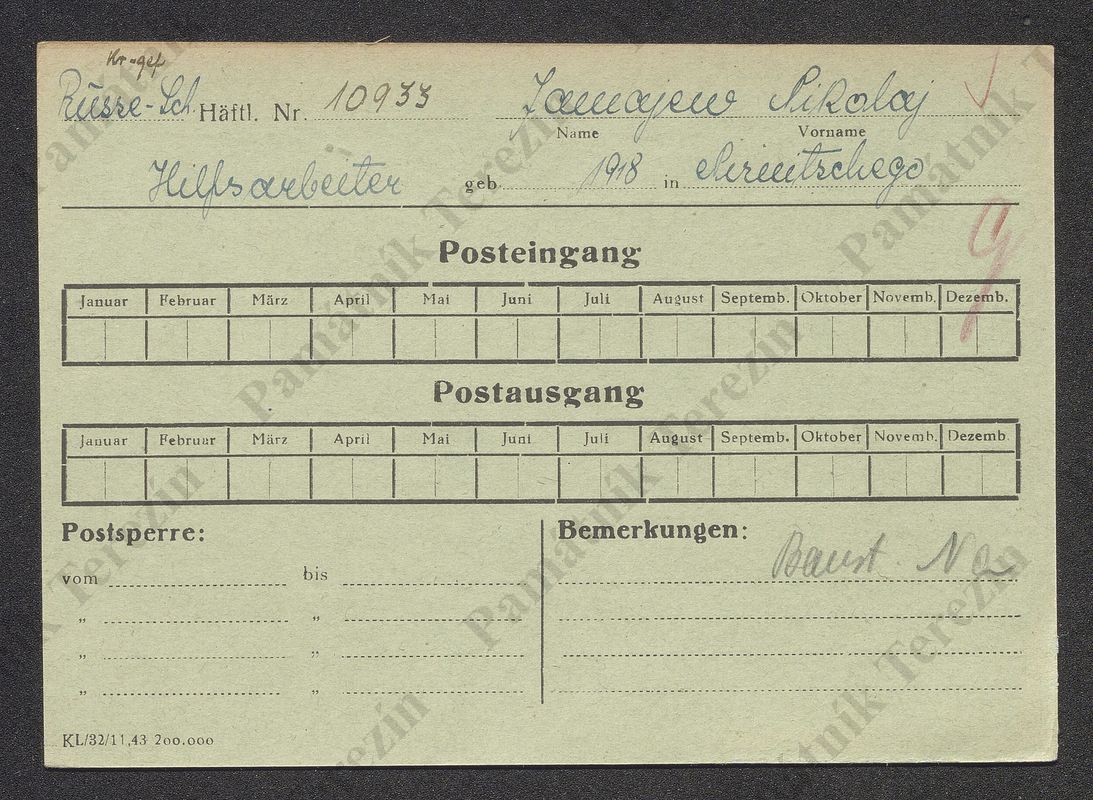 Kr-gef
Russe-Sch. Häftl. Nr. 10933 Jamajew Nikolaj
Name Vorname
Hilfsarbeiter geb. 1918 in
Posteingang
Januar Februar März April Mai Juni Juli August Septemb. Oktober Novemb. Dezemb.
Postausgang
Januar Februar März April Mai Juni Juli August Septemb. Oktober Novemb. Dezemb.
Postsperre: Bemerkungen:
vom bis Baust.
„ „
„ „
„ „
KL/32/11,43 200.000
Památník Terezín